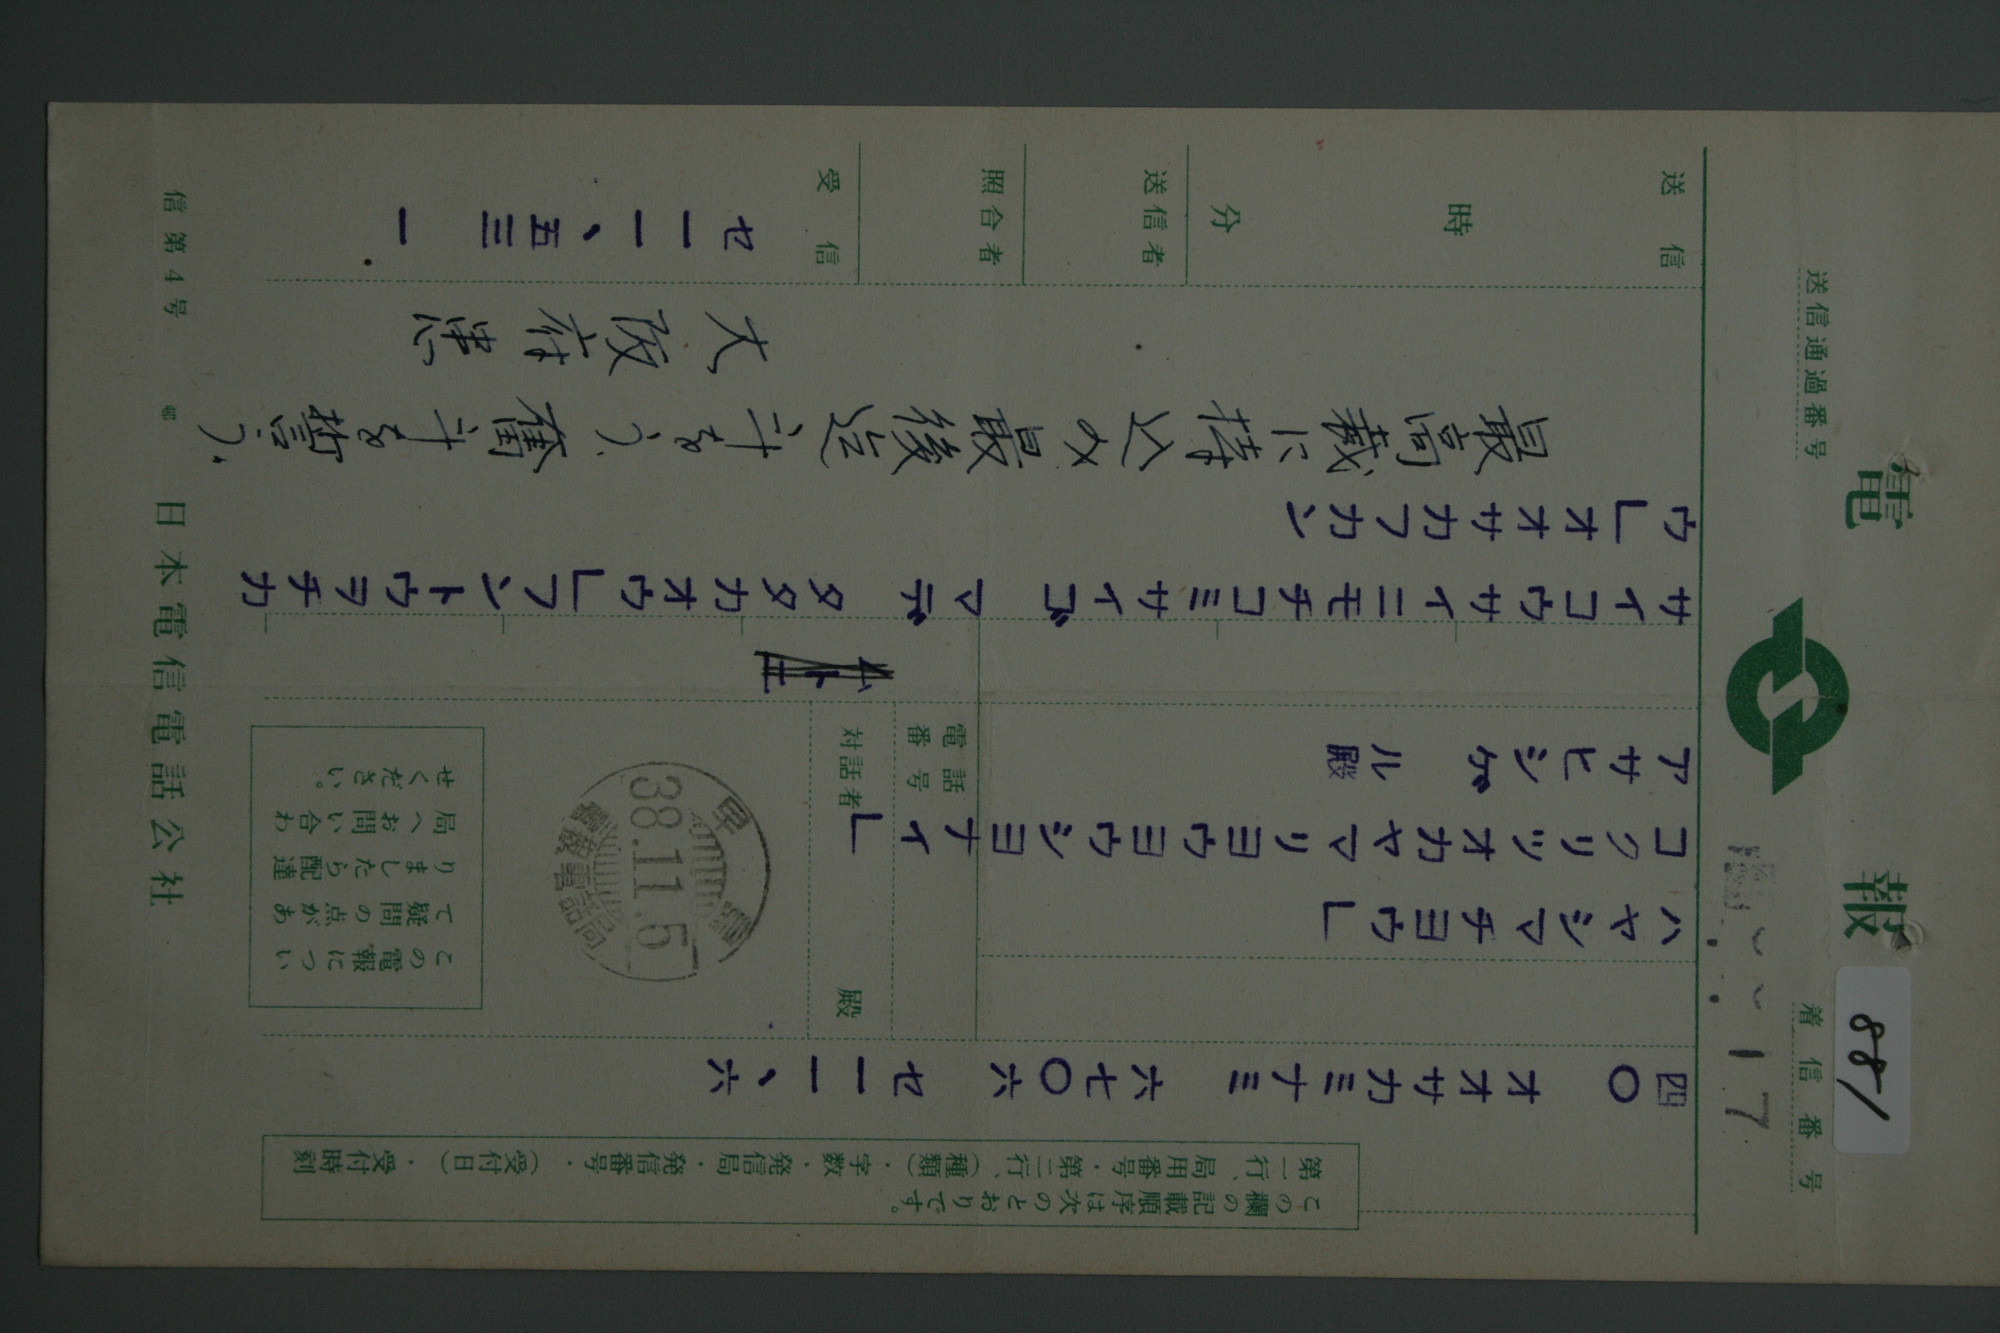 電報
送信通過番号
着信番号
881
17
この欄の記載順序は次のとおりです。
第一行、局用番号・第二行、(種類)・字数・発信局・発信番号・(受付日)・受付時刻
四〇 オオサカミナミ 六七〇六 セ一一、六
ハヤシマチヨウ」
コクリツオカヤマリヨウヨウシヨナイ」
アサヒシゲル殿
電話番号
対話者 殿
早島
38.11.5
電報電話局
この電報につい
て疑問の点があ
りましたら配達
局へお問い合わ
せください。
サイコウサイニモチコミサイゴマデタタカオウ」フントウヲチカ
ウ」オオサカフカン
最高裁に持込み最後迄斗をう、奮斗を誓う。
大阪府患
送信 時 分
送信者
照合者
受信
セ一一、五三 一
信第4号
日本電信電話公社